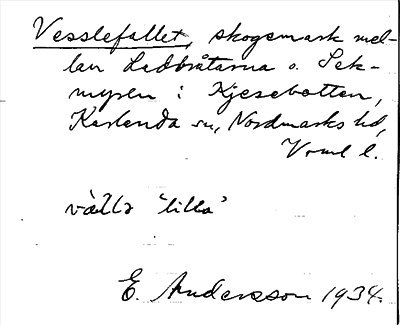 Vesslefallet, skogsmark mel-
lan Ladbråtarna o. Sek-
myren i Kjesebotten,
Karlanda sn, Nordmarks hd,
Vrml l.
'lilla'
E. Andersson 1934.